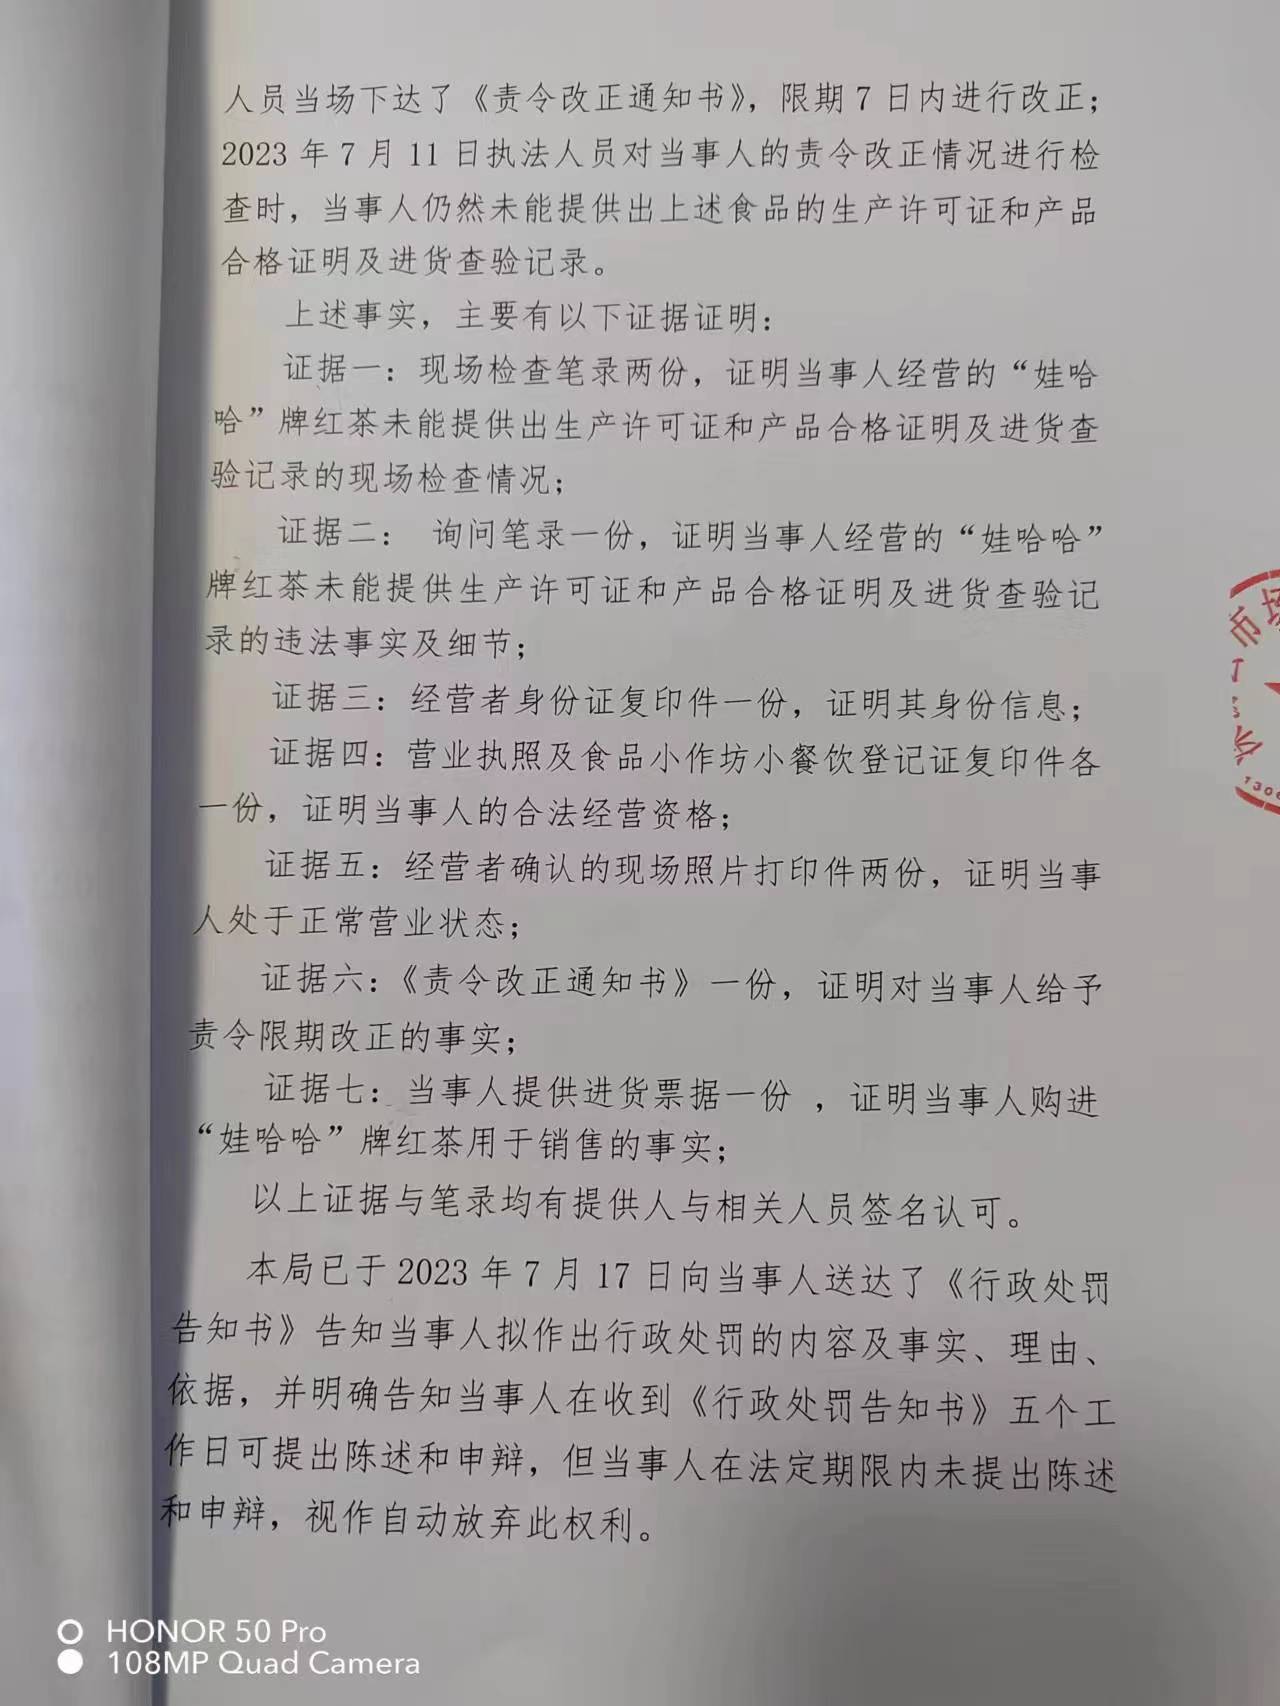 人员当场下达了《责令改正通知书》，限期7日内进行改正；
2023年7月11日执法人员对当事人的责令改正情况进行检
查时，当事人仍然未能提供出上述食品的生产许可证和产品
合格证明及进货查验记录。
上述事实，主要有以下证据证明：
证据一：现场检查笔录两份，证明当事人经营的“娃哈
哈”牌红茶未能提供出生产许可证和产品合格证明及进货查
验记录的现场检查情况；
证据二： 询问笔录一份，证明当事人经营的“娃哈哈”
牌红茶未能提供生产许可证和产品合格证明及进货查验记
录的违法事实及细节；
证据三：经营者身份证复印件一份，证明其身份信息；
证据四：营业执照及食品小作坊小餐饮登记证复印件各
一份，证明当事人的合法经营资格；
证据五：经营者确认的现场照片打印件两份，证明当事
人处于正常营业状态；
证据六：《责令改正通知书》一份，证明对当事人给予
责令限期改正的事实；
证据七：当事人提供进货票据一份 ，证明当事人购进
“娃哈哈”牌红茶用于销售的事实；
以上证据与笔录均有提供人与相关人员签名认可。
本局已于2023年7月17日向当事人送达了《行政处罚
告知书》告知当事人拟作出行政处罚的内容及事实、理由、
依据，并明确告知当事人在收到《行政处罚告知书》五个工
作日可提出陈述和申辩，但当事人在法定期限内未提出陈述
和申辩，视作自动放弃此权利。
市场
HONOR 50 Pro
108MP Quad Camera